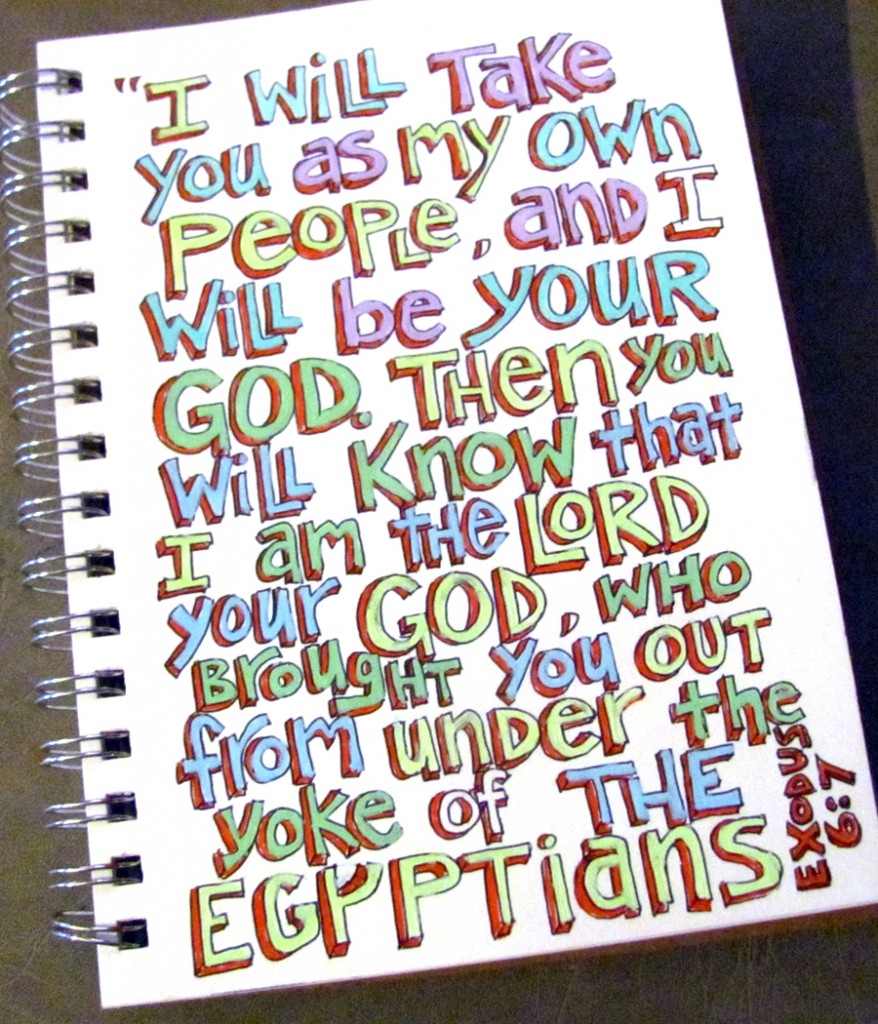 "I WiLL Take
you as my own
PEOPLe, and I
WiLL be your
GOD. THen you
WiLL KNOW that
I am the LORD
your GOD, WHO
BrougHT you OUT
from unDer the
yoke of THE
EGPPTians
EXODUS
6:7